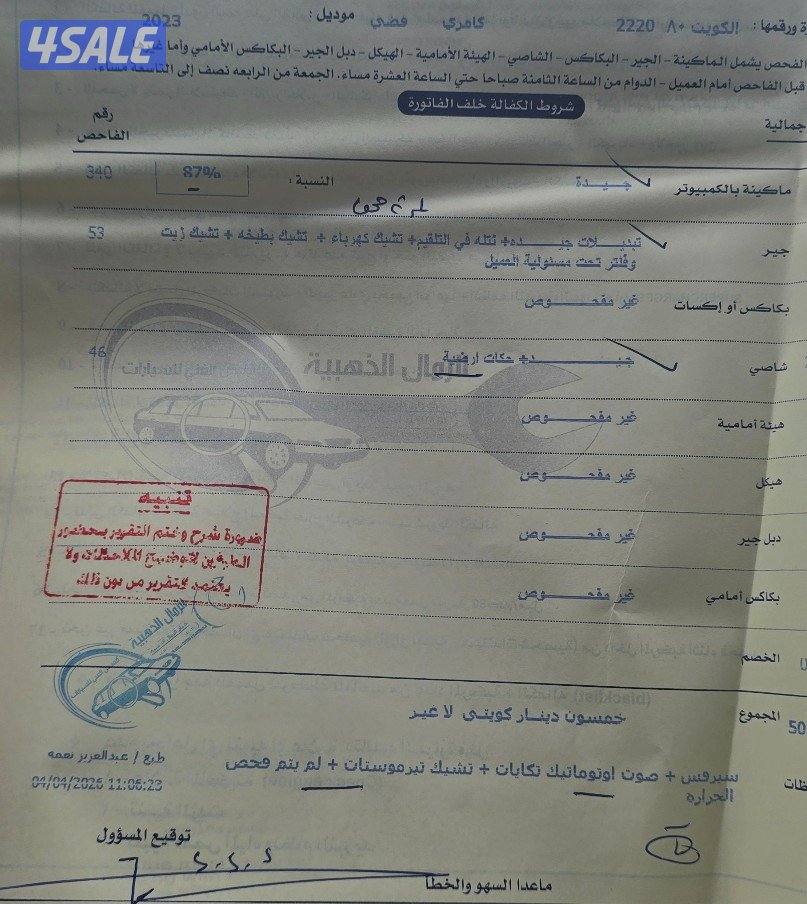 4SALE
ة ورقمها : الكويت ٨٠ 2220 كامري فضي موديل : 2023
الفحص يشمل الماكينة - الجير - البكاكس - الشاصي - الهيئة الأمامية - الهيكل - دبل الجير - البكاكس الأمامي وأما
قبل الفاحص أمام العميل - الدوام من الساعة الثامنة صباحا حتي الساعة العشرة مساء. الجمعة من الرابعه نصف إلى التاسعه مساء.
شروط الكفالة خلف الفاتورة
جمالية
رقم الفاحص
ماكينة بالكمبيوتر جيدة النسبة : 87% 340
جير تبديلات جيده+ نتله في التلقيم+ تشيك كهرباء + تشيك بطيخه + تشيك زيت 53
وفلتر تحت مسئولية العميل
بكاكس أو إكسات غير مفحوص
شاصي جيد+ حكات ارضية 46
الرمال الذهبية
الفني للسيارات
هيئة أمامية غير مفحوص
هيكل غير مفحوص
دبل جير غير مفحوص
بكاكس أمامي غير مفحوص
تنبيه
ضرورة شرح وختم التقرير بحضور
الطرفين لتوضيح الملاحظات ولا
يعتمد التقرير من دون ذلك
الخصم
الرمال الذهبية
المجموع خمسون دينار كويتي لا غير 50
ظات سيرفس + صوت اوتوماتيك تكايات + تشيك تيرموستات + لم يتم فحص
الحراره
طبع / عبدالعزيز نعمه
04/04/2026 11:06:23
توقيع المسؤول
ماعدا السهو والخطأ